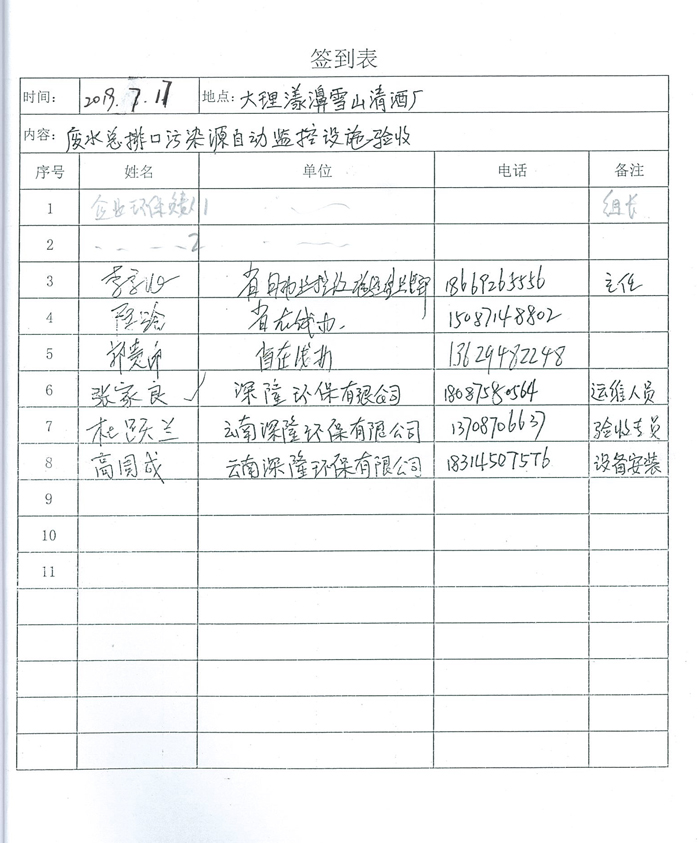 签到表
时间： 2019.7.17 地点：大理漾濞雪山清酒厂
内容：废水总排口污染源自动监控设施验收
序号 姓名 单位 电话 备注
1 企业环保 1 组长
2 2
3 省自动监控 18669265556 主任
4 省在线办. 15087148802
5 省在线办 13629482248
6 张家良 ✓ 深隆环保有限公司 18087580564 运维人员
7 杜跃兰 云南深隆环保有限公司 13708706637 验收专员
8 高圆成 云南深隆环保有限公司 18314507576 设备安装
9
10
11